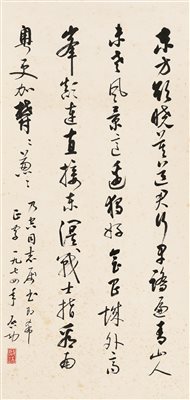 東方欲曉莫道君行早踏遍青山人
未老風景這邊獨好會昌城外高
峯顛連直接東溟戰士指看南
粵更加鬱〻蔥〻
同志屬書即希
正字 一九七四年 啟功